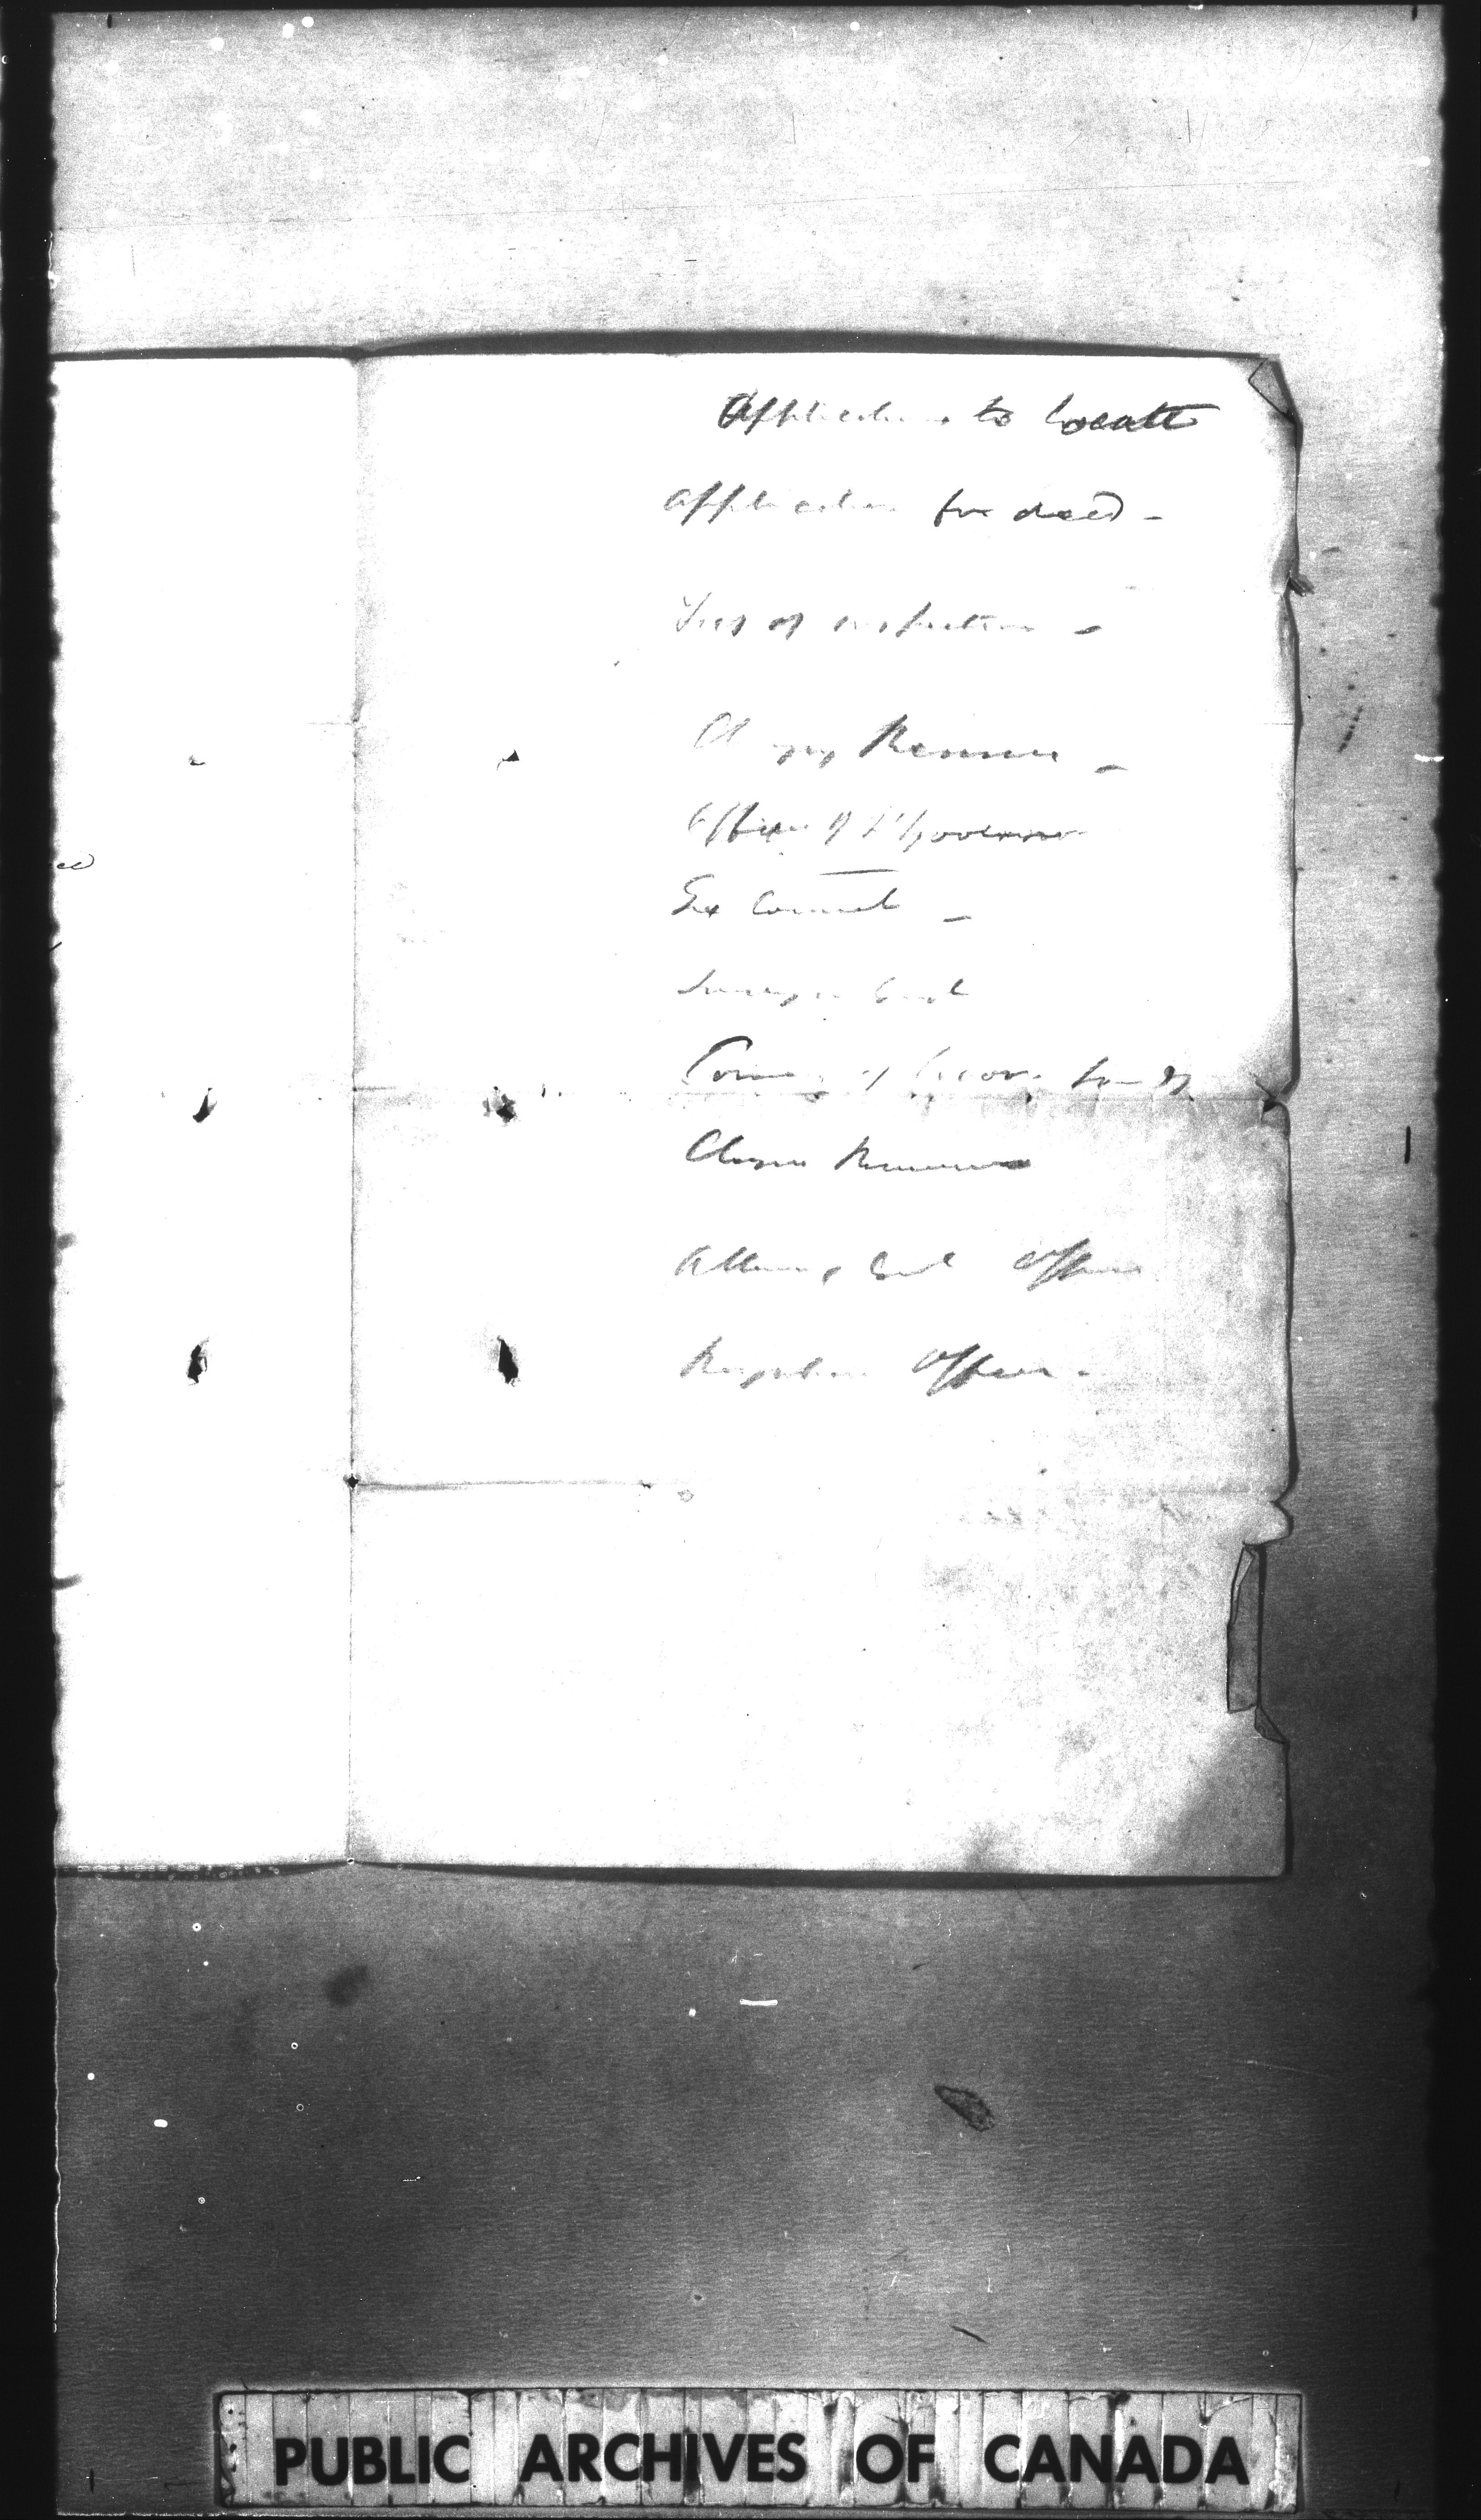 Application to Locate
Application for deed -
Fees of inspection -
Clergy Reserve -
Office of Lt Governor
Ex Council -
Surveyor Genl
Comr of Crown Lands
Clergy Reserves
Attorney Genl Office
Register Office -
PUBLIC ARCHIVES OF CANADA